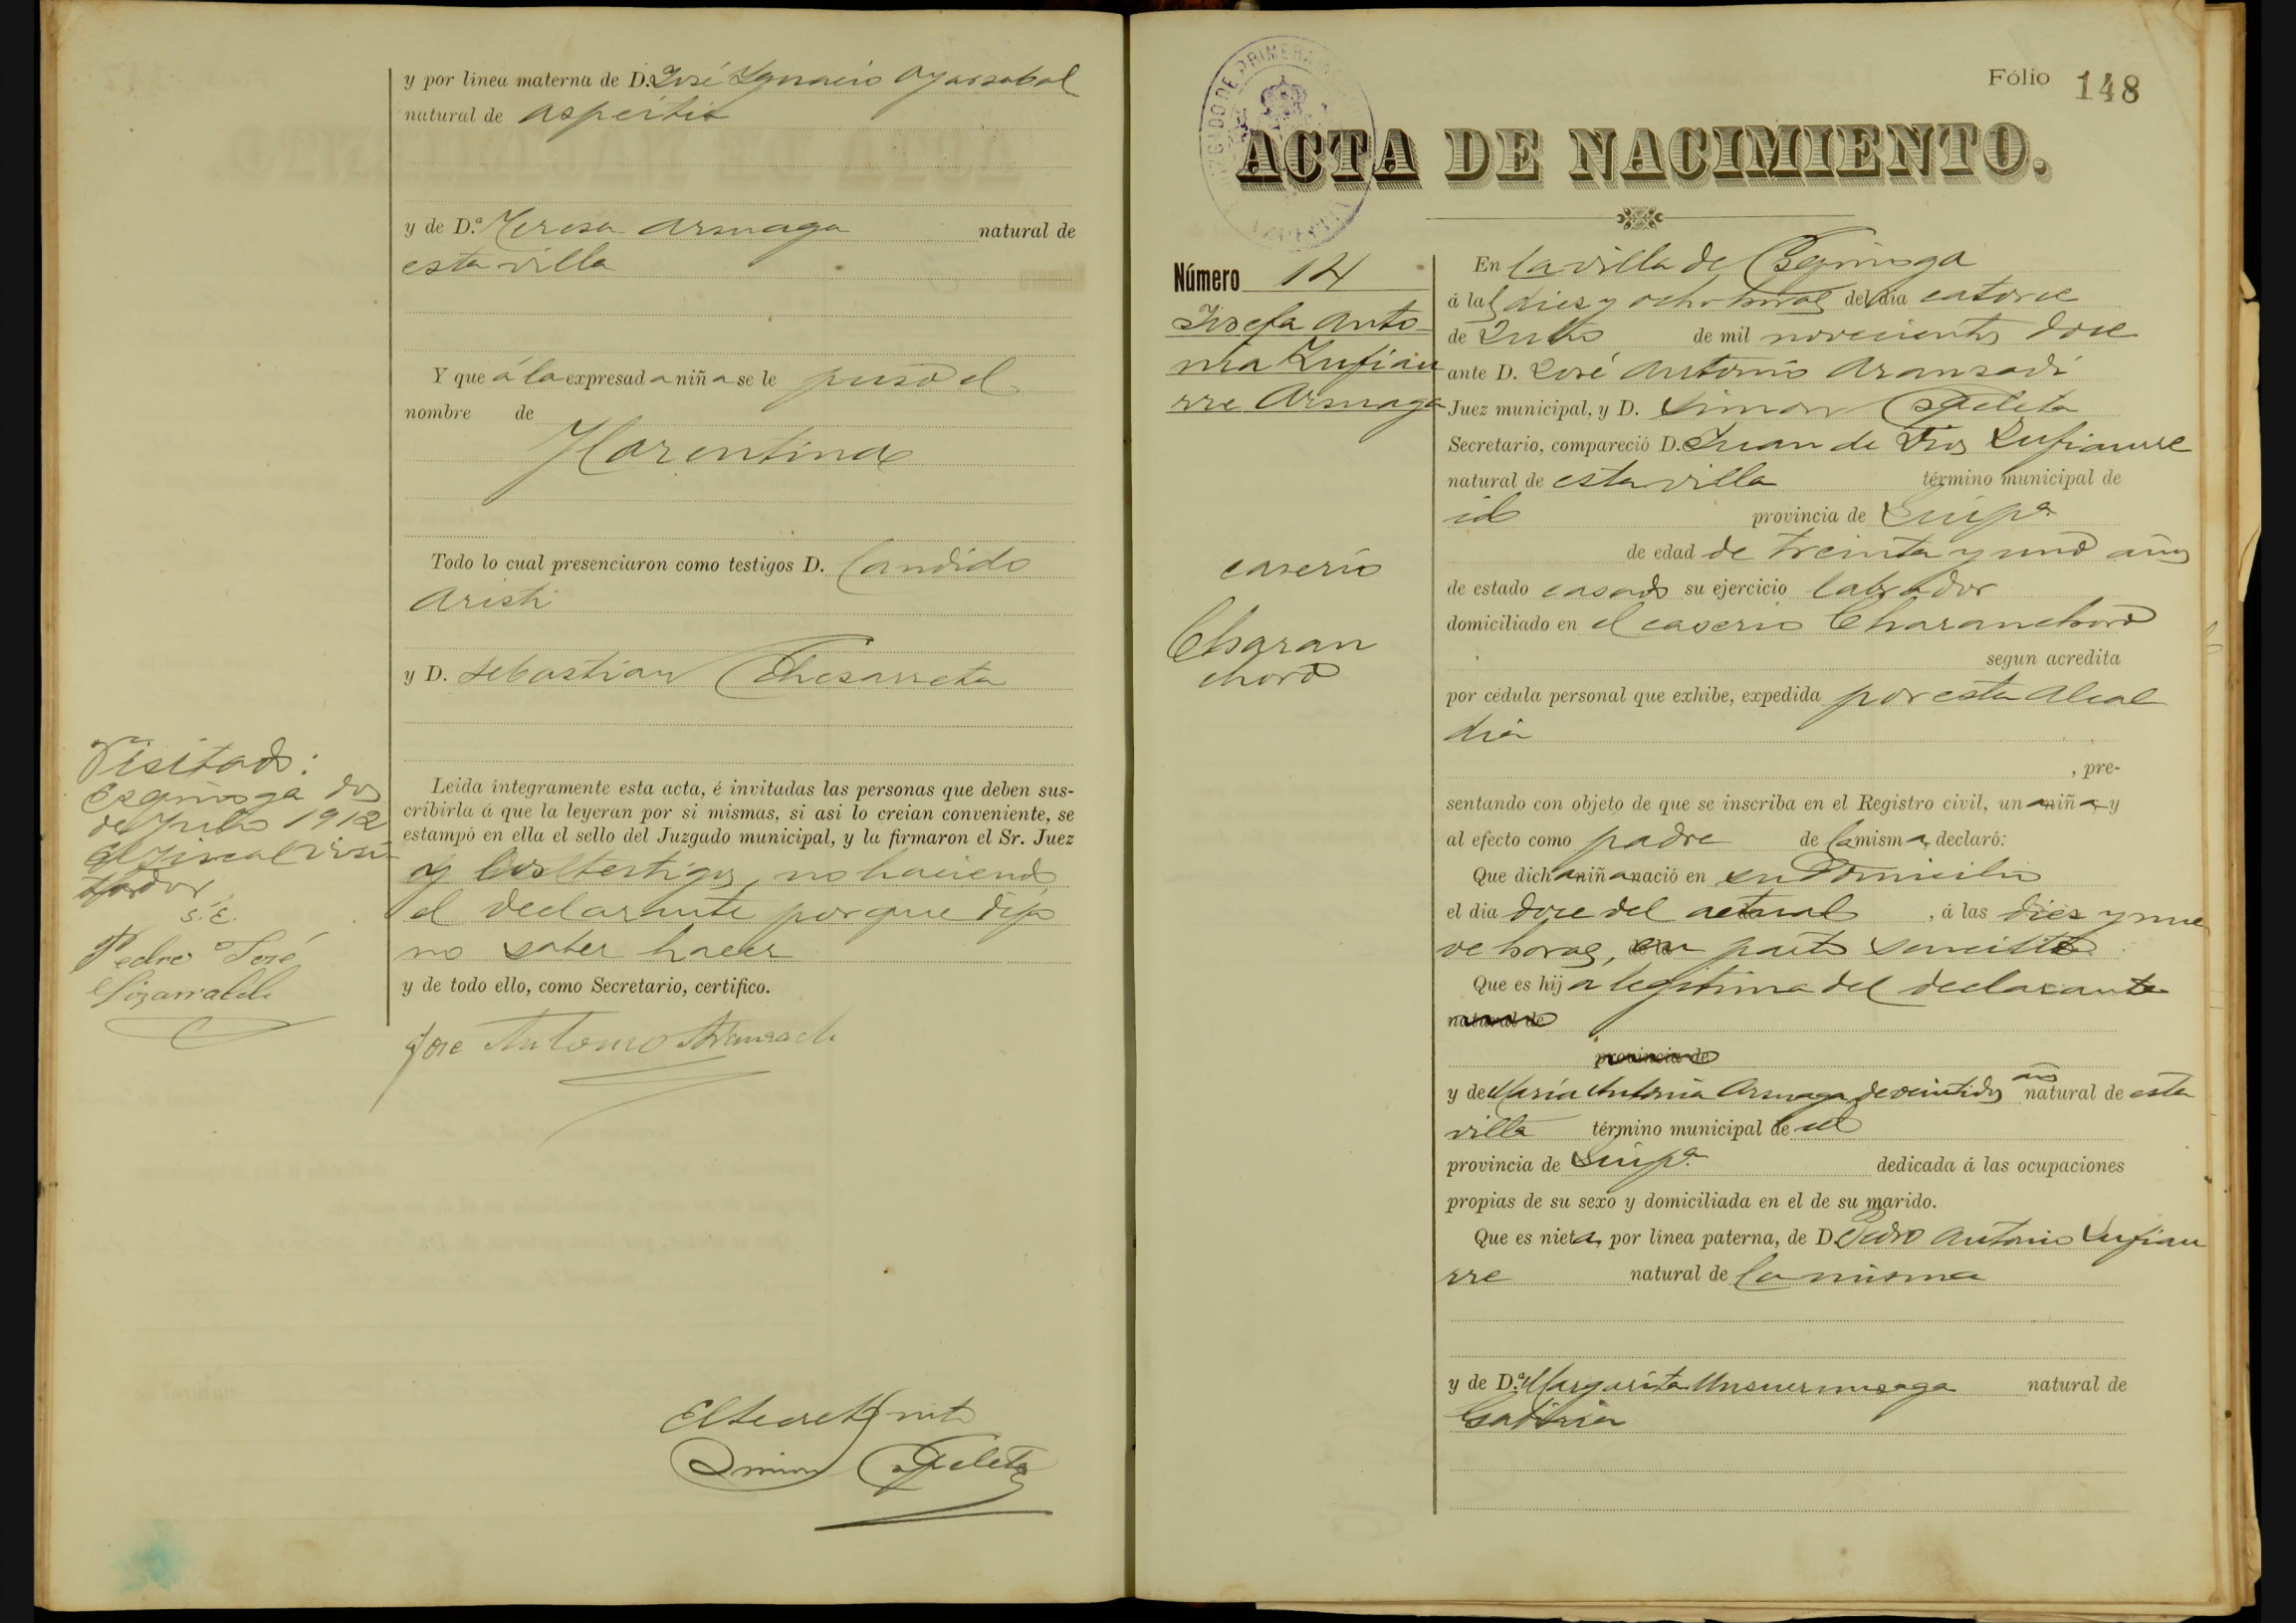 y por línea materna de D. José Ygnacio Oyarzabal
natural de Aspeitia
y de D.ª Teresa Arsuaga natural de
esta villa
Y que á la expresada niña se le puso el
nombre de
Florentina
Todo lo cual presenciaron como testigos D. Candido
Aristi
y D. Sebastian Echezarreta
Leida íntegramente esta acta, é invitadas las personas que deben sus-
cribirla á que la leyeran por si mismas, si asi lo creian conveniente, se
estampó en ella el sello del Juzgado municipal, y la firmaron el Sr. Juez
y los testigos, no haciendo
el declarante porque dijo
no saber hacer
y de todo ello, como Secretario, certifico.
Jose Antonio Aransadi
El Secret
Simon Egileta
Visitado:
Ezquioga dos
de Julio 1912
El Fiscal visi-
tador
S. E.
Pedro José
Lizarralde
Fólio 148
JUZGADO DE PRIMERA
ACTA DE NACIMIENTO.
Número 14
Josefa Anto-
nia Zufiau
rre Arsuaga
caserio
Charan
choro
En la villa de Ezquioga
á las dies y ocho horas del dia catorce
de Julio de mil novecientos doce
ante D. José Antonio Aransadi
Juez municipal, y D. Simon Egileta
Secretario, compareció D. Juan de Dios Zufiaurre
natural de esta villa término municipal de
id provincia de Guipª
de edad de treinta y uno años
de estado casado su ejercicio labrador
domiciliado en el caserio Charanchoro
segun acredita
por cédula personal que exhibe, expedida por esta Alcal
dia
, pre-
sentando con objeto de que se inscriba en el Registro civil, una niña y
al efecto como padre de la misma, declaró:
Que dicha niña nació en su domicilio
el dia doce del actual , á las dies y nue
ve horas, en parto sencillo
Que es hija legitima del declarante
natural de
provincia de
y de Maria Antonia Arsuaga de veintidos años natural de esta
villa término municipal de id
provincia de Guipª dedicada á las ocupaciones
propias de su sexo y domiciliada en el de su marido.
Que es nieta, por línea paterna, de D. Pedro Antonio Zufiau
rre natural de la misma
y de D.ª Margarita Unsurrunsaga natural de
Gabiria